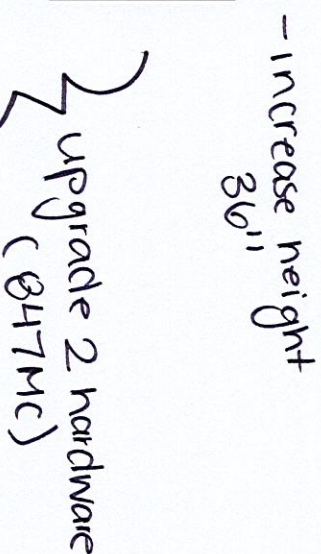 -increase height
36"
upgrade 2 hardware
(847MC)